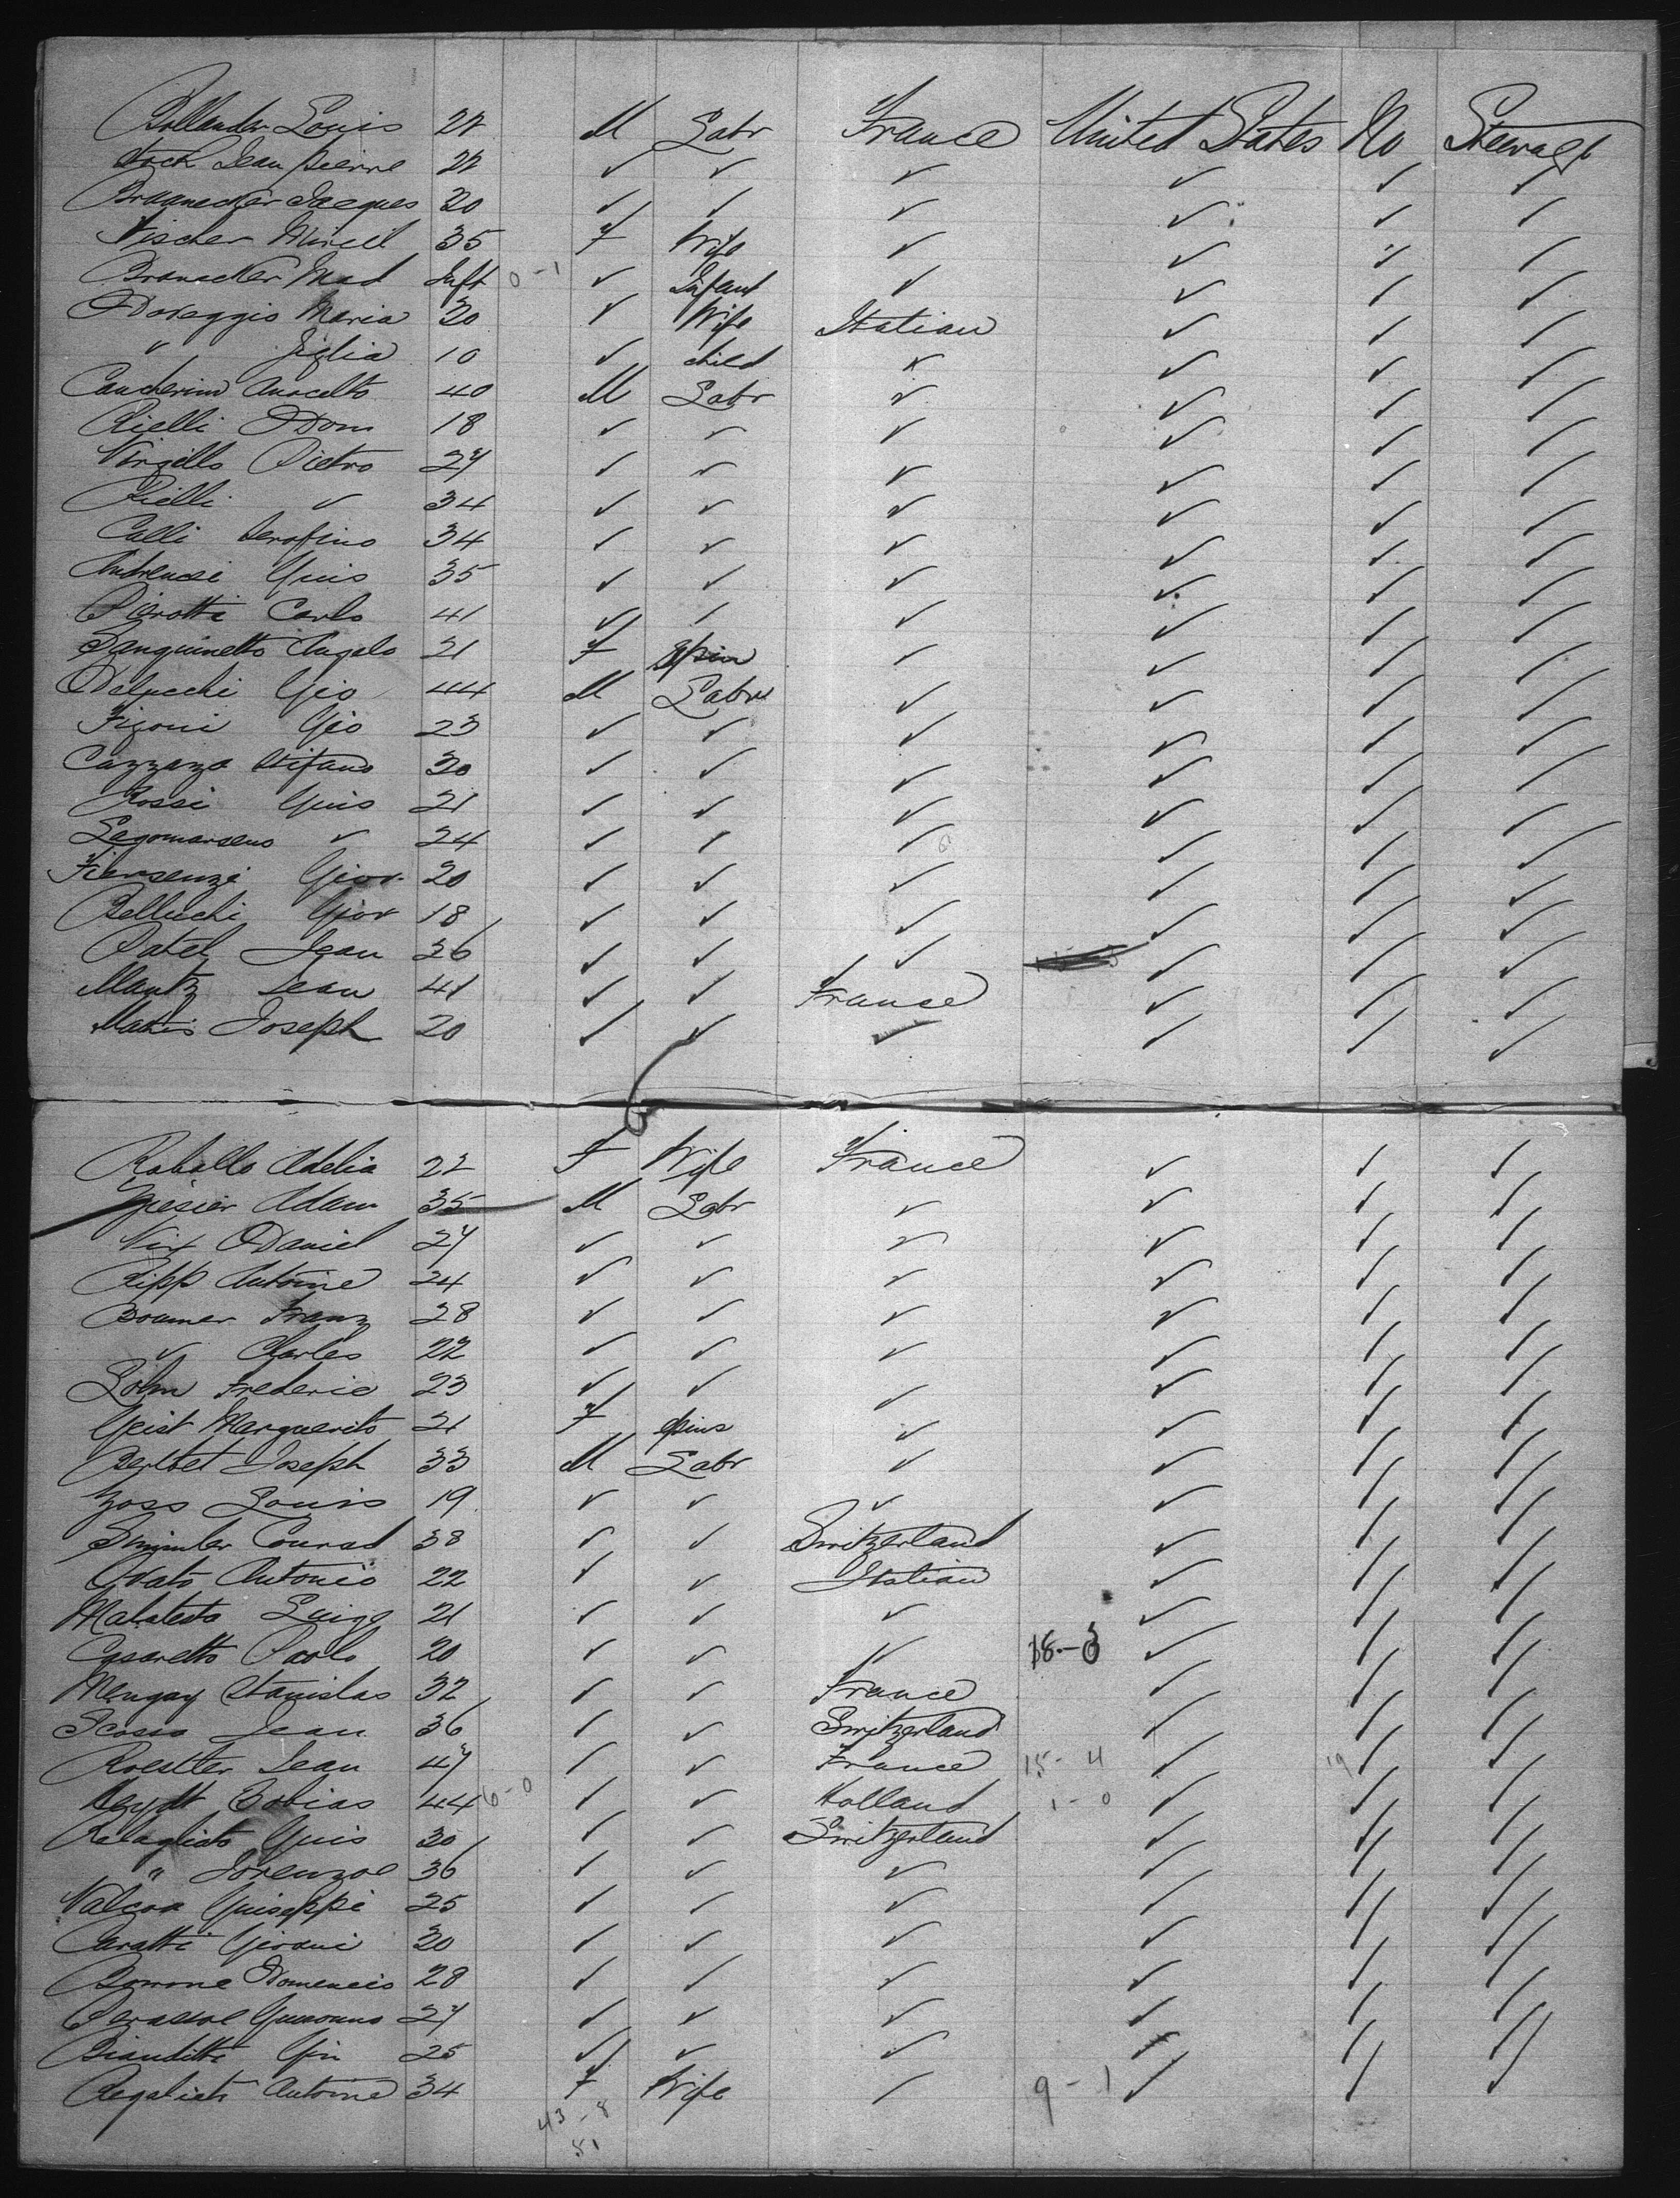 Bollander Louis 22 M Labr France United States No Steerage
Stoch Jean Pierre 22 ✓ ✓ ✓ ✓ ✓ ✓
Braunecker Jacques 20 ✓ ✓ ✓ ✓ ✓ ✓
Fischer 35 F Wife ✓ ✓ ✓ ✓
Branecker Mad Inft 0-1 ✓ Infant ✓ ✓ ✓ ✓
Dovaggio Maria 30 ✓ Wife Italian ✓ ✓ ✓
✓ Giglia 10 ✓ child ✓ ✓ ✓ ✓
Caucherino Anacelto 40 M Labr ✓ ✓ ✓ ✓
Rielli Dom 18 ✓ ✓ ✓ ✓ ✓ ✓
Virgillo Pietro 27 ✓ ✓ ✓ ✓ ✓ ✓
Rielli ✓ 34 ✓ ✓ ✓ ✓ ✓ ✓
Calli Serafino 34 ✓ ✓ ✓ ✓ ✓ ✓
Andreucci Guis 35 ✓ ✓ ✓ ✓ ✓ ✓
Pierotti Carlo 41 ✓ ✓ ✓ ✓ ✓ ✓
Sanguinetto Angelo 21 F Spin ✓ ✓ ✓ ✓
Delucchi Gio 44 M Labr ✓ ✓ ✓ ✓
Figoni Gio 23 ✓ ✓ ✓ ✓ ✓ ✓
Cazzaza Stefano 30 ✓ ✓ ✓ ✓ ✓ ✓
Rossi Guis 21 ✓ ✓ ✓ ✓ ✓ ✓
Legomarseno ✓ 24 ✓ ✓ ✓ ✓ ✓ ✓
Fiorsenzi Giov. 20 ✓ ✓ ✓ ✓ ✓ ✓
Belluchi Giov 18 ✓ ✓ ✓ ✓ ✓ ✓
Patel Jean 36 ✓ ✓ ✓ ✓ ✓ ✓
Mantz Jean 41 ✓ ✓ France ✓ ✓ ✓
Mathis Joseph 20 ✓ ✓ ✓ ✓ ✓ ✓
Raballo Adelia 22 F Wife France ✓ ✓ ✓
Giesier Adam 35 M Labr ✓ ✓ ✓ ✓
Nix Daniel 27 ✓ ✓ ✓ ✓ ✓ ✓
Ripp Antoine 24 ✓ ✓ ✓ ✓ ✓ ✓
Boumer Franz 28 ✓ ✓ ✓ ✓ ✓ ✓
✓ Charles 22 ✓ ✓ ✓ ✓ ✓ ✓
Lohn Frederic 23 ✓ ✓ ✓ ✓ ✓ ✓
Geist Marguerite 21 F Spins ✓ ✓ ✓ ✓
Berlbet Joseph 33 M Labr ✓ ✓ ✓ ✓
Zoss Louis 19 ✓ ✓ ✓ ✓ ✓ ✓
Simmler Conrad 38 ✓ ✓ Switzerland ✓ ✓ ✓
Ovato Antonio 22 ✓ ✓ Italian ✓ ✓ ✓
Malatesta Luige 21 ✓ ✓ ✓ ✓ ✓ ✓
Casaretto Paolo 20 ✓ ✓ ✓ 18-3 ✓ ✓ ✓
Mengay Stanislas 32 ✓ ✓ France ✓ ✓ ✓
Jean 36 ✓ ✓ Switzerland ✓ ✓ ✓
Roestter Jean 47 ✓ ✓ France 15-4 ✓ 19 ✓ ✓
Tobias 44 6-0 ✓ ✓ Holland 1-0 ✓ ✓ ✓
Relagliato Guis 30 ✓ ✓ Switzerland ✓ ✓ ✓
" Lorenzoe 36 ✓ ✓ ✓ ✓ ✓ ✓
Guiseppi 25 ✓ ✓ ✓ ✓ ✓ ✓
Caratti Giovani 30 ✓ ✓ ✓ ✓ ✓ ✓
Bomone Domencio 28 ✓ ✓ ✓ ✓ ✓ ✓
27 ✓ ✓ ✓ ✓ ✓ ✓
Bianditti Gio 25 ✓ ✓ ✓ ✓ ✓ ✓
Regaliati Antoine 34 F Wife ✓ 9-1 ✓ ✓ ✓
43-8
51